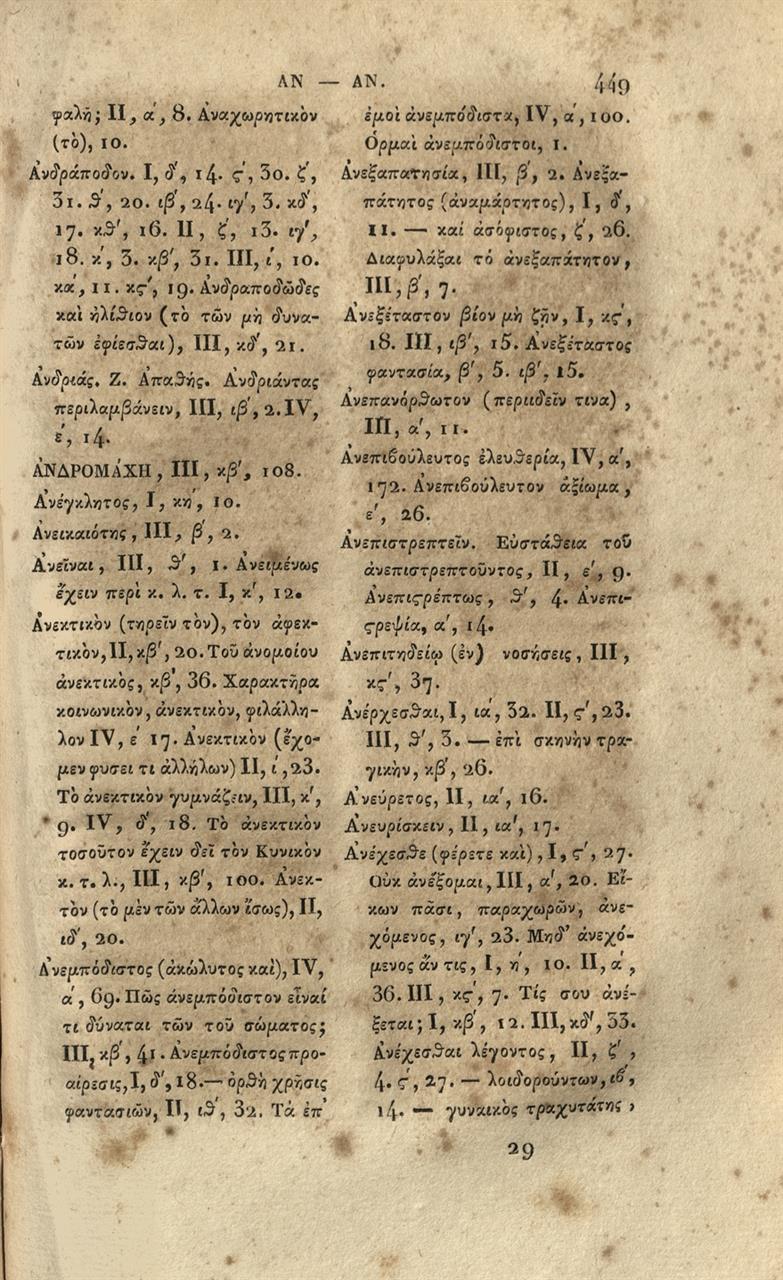 ΑΝ — ΑΝ. 449
φαλῇ; II, α΄, 8. Ἀναχωρητικὸν
(τὸ), 10.
Ἀνδράποδον. I, δ΄, 14. ς΄, 30. ζ΄,
31. θ΄, 20. ιβ΄, 24. ιγ΄, 3. κδ΄,
17. κθ΄, 16. II, ζ΄, 13. ιγ΄,
18. κ΄, 3. κβ΄, 31. III, ί, 10.
κά, 11. κς΄, 19. Ἀνδραποδῶδες
καὶ ἠλίθιον (τὸ τῶν μὴ δυνα-
τῶν ἐφίεσθαι), III, κδ΄, 21.
Ἀνδριάς. Ζ. Ἀπαθής. Ἀνδριάντας
περιλαμβάνειν, III, ιβ΄, 2. IV,
έ, 14.
ἈΝΔΡΟΜΆΧΗ, III, κβ΄, 108.
Ἀνέγκλητος, I, κή, 10.
Ἀνεικαιότης, III, β΄, 2.
Ἀνεῖναι, III, θ΄, 1. Ἀνειμένως
ἔχειν περὶ κ. λ. τ. I, κ΄, 12.
Ἀνεκτικὸν (τηρεῖν τὸν), τὸν ἀφεκ-
τικὸν, II, κβ΄, 20. Τοῦ ἀνομοίου
ἀνεκτικὸς, κβ΄, 36. Χαρακτῆρα
κοινωνικὸν, ἀνεκτικὸν, φιλάλλη-
λον IV, έ 17. Ἀνεκτικὸν (ἔχο-
μεν φυσει τι ἀλλήλων) II, ί, 23.
Τὸ ἀνεκτικὸν γυμνάζειν, III, κ΄,
9. IV, δ΄, 18. Τὸ ἀνεκτικὸν
τοσοῦτον ἔχειν δεῖ τὸν Κυνικὸν
κ. τ. λ., III, κβ΄, 100. Ἀνεκ-
τὸν (τὸ μὲν τῶν ἄλλων ἴσως), II,
ιδ΄, 20.
Ἀνεμπόδιστος (ἀκώλυτος καὶ), IV,
ά, 69. Πῶς ἀνεμπόδιστον εἶναί
τι δύναται τῶν τοῦ σώματος;
III, κβ΄, 41. Ἀνεμπόδιστος προ-
αίρεσις, I, δ΄, 18. — ὀρθὴ χρῆσις
φαντασιῶν, II, ιθ΄, 32. Τὰ ἐπ᾿
ἐμοὶ ἀνεμπόδιστα, IV, ά, 100.
Ὁρμαὶ ἀνεμπόδιστοι, 1.
Ἀνεξαπατησία, III, β΄, 2. Ἀνεξα-
πάτητος (ἀναμάρτητος), I, δ΄,
11. — καί ἀσόφιστος, ζ΄, 26.
Διαφυλάξαι τό ἀνεξαπάτητον,
III, β΄, 7.
Ἀνεξέταστον βίον μὴ ζῇν, I, κς΄,
18. III, ιβ΄, 15. Ἀνεξέταστος
φαντασία, β΄, 5. ιβ΄, 15.
Ἀνεπανόρθωτον (περιιδεῖν τινα),
III, α΄, 11.
Ἀνεπιβούλευτος ἐλευθερία, IV, α΄,
172. Ἀνεπιβούλευτον ἀξίωμα,
ε΄, 26.
Ἀνεπιστρεπτεῖν. Εὐστάθεια τοῦ
ἀνεπιστρεπτοῦντος, II, ε΄, 9.
Ἀνεπιςρέπτως, θ΄, 4. Ἀνεπι-
ςρεψία, α΄, 14.
Ἀνεπιτηδείῳ (ἐν) νοσήσεις, III,
κς΄, 37.
Ἀνέρχεσθαι, I, ιά, 32. II, ς΄, 23.
III, θ΄, 3. — ἐπὶ σκηνὴν τρα-
γικὴν, κβ΄, 26.
Ἀνεύρετος, II, ια΄, 16.
Ἀνευρίσκειν, II, ια΄, 17.
Ἀνέχεσθε (φέρετε καὶ), I, ς΄, 27.
Οὐκ ἀνέξομαι, III, α΄, 20. Εἴ-
κων πᾶσι, παραχωρῶν, ἀνε-
χόμενος, ιγ΄, 23. Μηδ᾿ ἀνεχό-
μενος ἄν τις, I, ή, 10. II, ά,
36. III, κς΄, 7. Τίς σου ἀνέ-
ξεται; I, κβ΄, 12. III, κδ΄, 33.
Ἀνέχεσθαι λέγοντος, II, ζ΄,
4. ς΄, 27. — λοιδορούντων, ιβ΄,
14. — γυναικὸς τραχυτάτης,
29